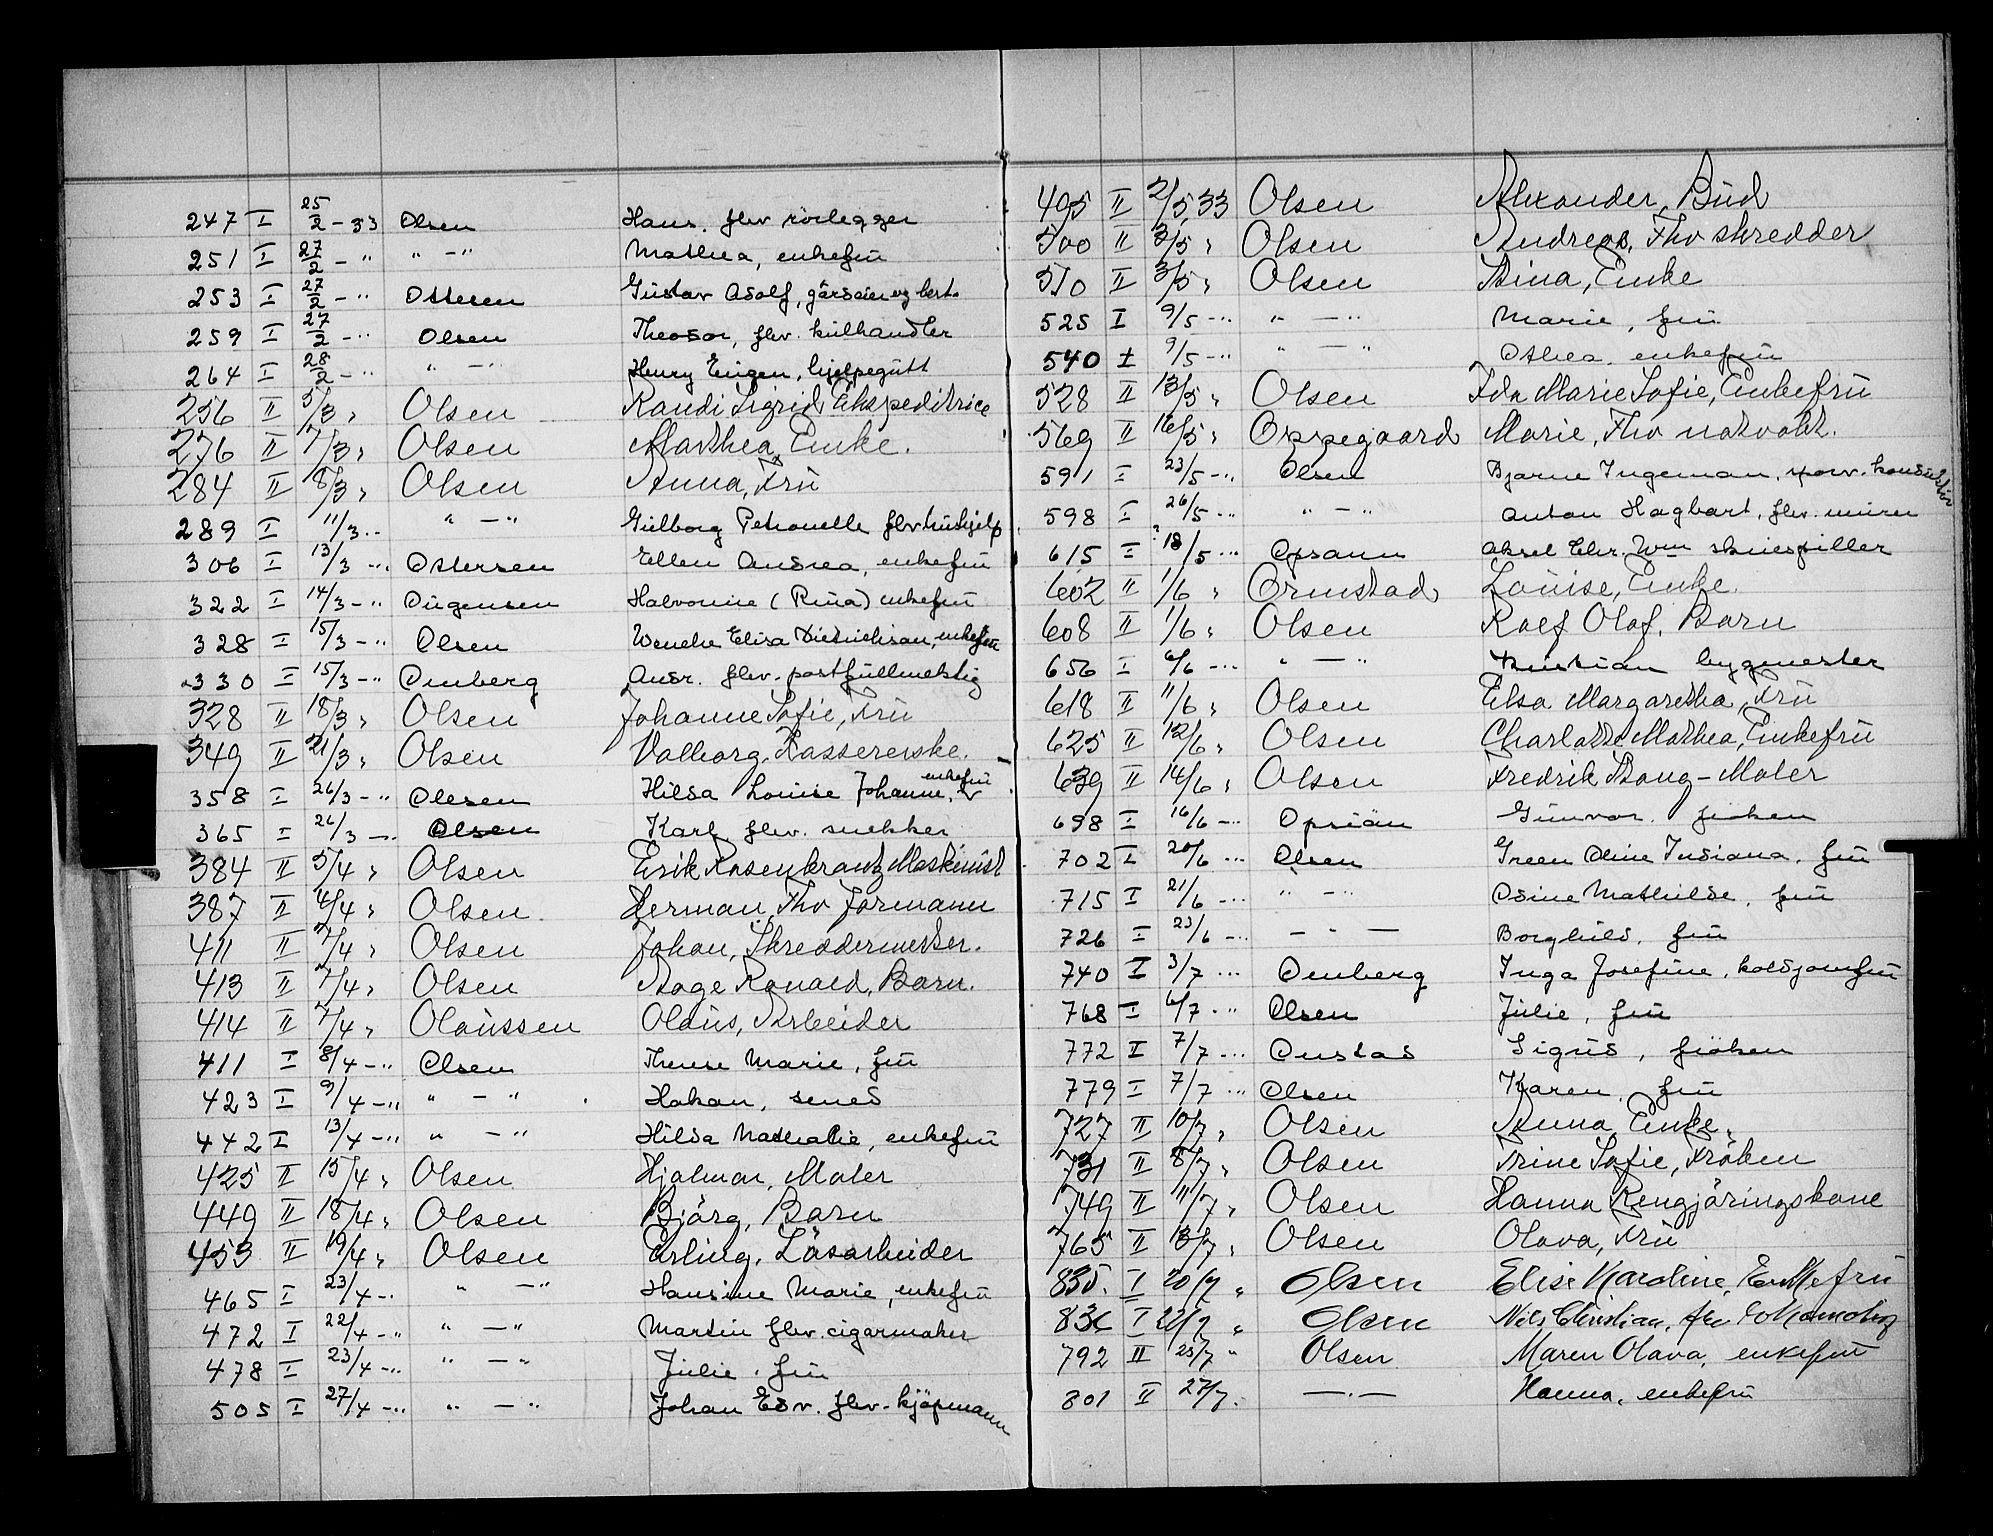 247 I 25/2 - 33 Olsen Hans, fhv rörlegger
251 I 27/2 - " " - " Mathea, enkefru
253 I 27/2 - " Ottesen Gustav Adolf, gårdeier og
259 I 27/2 - " Olsen Theodor, fhv. kulhandler
264 I 28/2 - " " - " Henry Eugen, hjelpegutt
256 II 5/3 " Olsen Randi Sigrid Ekspeditrice
276 II 7/3 " Olsen Marthea, Enke.
284 II 8/3 " Olsen Anna, Fru
289 I 11/3 - " " - " Gulborg Petronelle fhv hushjelp
306 I 13/3 - " Ottersen Ellen Andrea, enkefru
322 I 14/3 - " Halvorine (Rina) enkefru
328 I 15/3 - " Olsen Wenche Elisa Dietrichson, enkefru
330 I 15/3 - " Omberg Andr. fhv. postfullmektig
328 II 18/3 " Olsen Johanne Sofie, Fru
349 II 21/3 " Olsen Valborg, Kassererske.
358 I 26/3 - " Olesen Hilda Louise Johanne, enkefru
365 I 26/3 - " Olsen Karl fhv. snekker
384 II 5/4 " Olsen Erik Rosenkrantz Maskinist
387 II 6/4 " Olsen Herman, Fhv Formann
411 II 7/4 " Olsen Johan, Skreddermester.
413 II 7/4 " Olsen Aage Ronald, Barn.
414 II 7/4 " Olaussen Olaus, Arbeider
411 I 8/4 - " Olsen Therese Marie, fru
423 I 9/4 - " " - " Hakon, senes
442 I 13/4 - " " - " Hilda Nathalie, enkefru
425 II 15/4 " Olsen Hjalmar, Maler
449 II 18/4 " Olsen Björg, Barn
453 II 19/4 " Olsen Erling, Lösarbeider
465 I 23/4 - " " - " Hansine Marie, enkefru
472 I 22/4 - " " - " Martin fhv. cigarmaker
478 I 23/4 - " " - " Julie, fru
505 I 27/4 - " " - " Johan Edv. fhv. kjöpmann
495 II 2/5 33 Olsen Alexander, Bud
500 II 3/5 " Olsen Andreas, Fhv skredder
510 II 3/5 " Olsen Stina, Enke
525 I 9/5 - " " - " Marie, fru
540 I 9/5 - " " - " Othea, enkefru
528 II 13/5 " Olsen Ida Marie Sofie, Enkefru
569 II 16/5 " Oppegaard Marie, Fhv natvakt.
591 I 23/5 - " Olsen Bjarne Ingeman,
598 I 26/5 - " " - " Anton Hagbart, fhv. murer
615 I 18/5 - " Opsann Aksel Chr. Wm skuespiller
602 II 1/6 " Ormstad Louise, Enke.
608 II 1/6 " Olsen Rolf Olaf, Barn
656 I 6/6 - " " - " Kristian bygmester
618 II 11/6 " Olsen Elsa Margaretha, Fru
625 II 12/6 " Olsen Charlotte Mathea, Enkefru
639 II 14/6 " Olsen Fredrik Bang - Maler
698 I 16/6 - " Gunvor, fröken
702 I 20/6 - " Olsen Green Oline Indiana, fru
715 I 21/6 - " " - " Osine Mathilde, fru
726 I 23/6 - " - " - Borghild, fru
740 I 3/7 - " Omberg Inga Josefine, koldjomfru
768 I 6/7 - " Olsen Julie, fru
772 I 7/7 - " Onstad Sigrid, fröken
779 I 7/7 - " Olsen Karen, fru
727 II 10/7 " Olsen Anna, Enke,
731 II 8/7 " Olsen Trine Sofie, Fröken
749 II 11/7 " Olsen Hanna Rengjöringskone
765 II 13/7 " Olsen Olava, Fru
835. I 20/7 " Olsen Elise Karoline, Enkefru
836 I 22/7 " Olsen Nils Christian, fhv
792 II 25/7 " Olsen Maren Olava, enkefru
801 II 27/7. - " - Hanna, enkefru